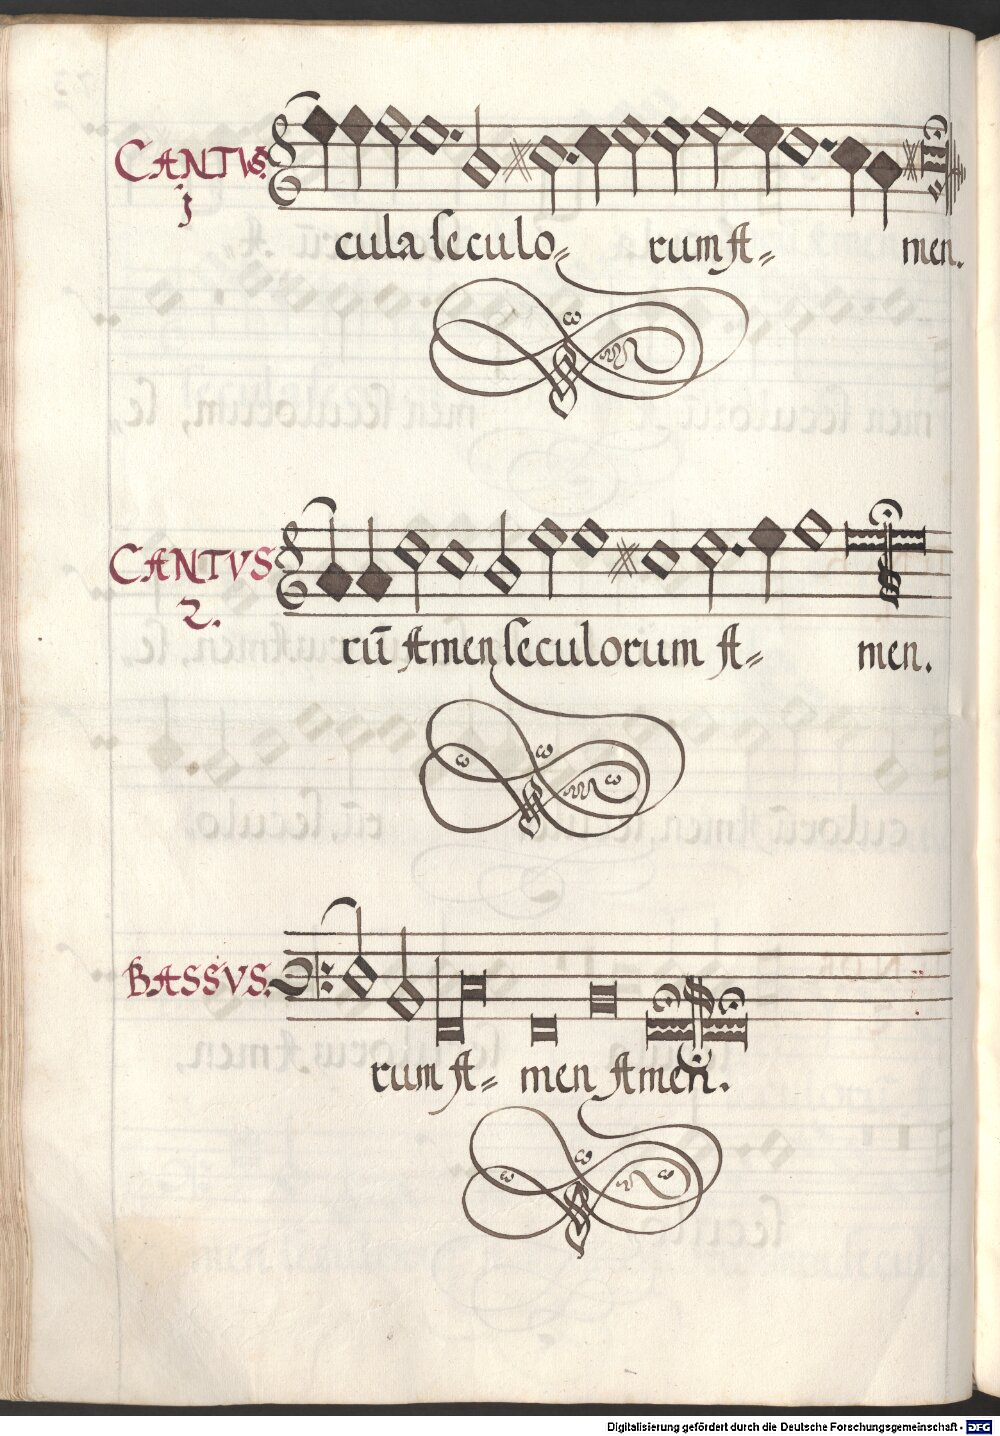 CANTVS.
j
cula seculo= rum A= men.
CANTVS
2.
rū Amen seculorum A= men.
BASSVS.
rum A= men Amen.
Digitalisierung gefördert durch die Deutsche Forschungsgemeinschaft - DFG